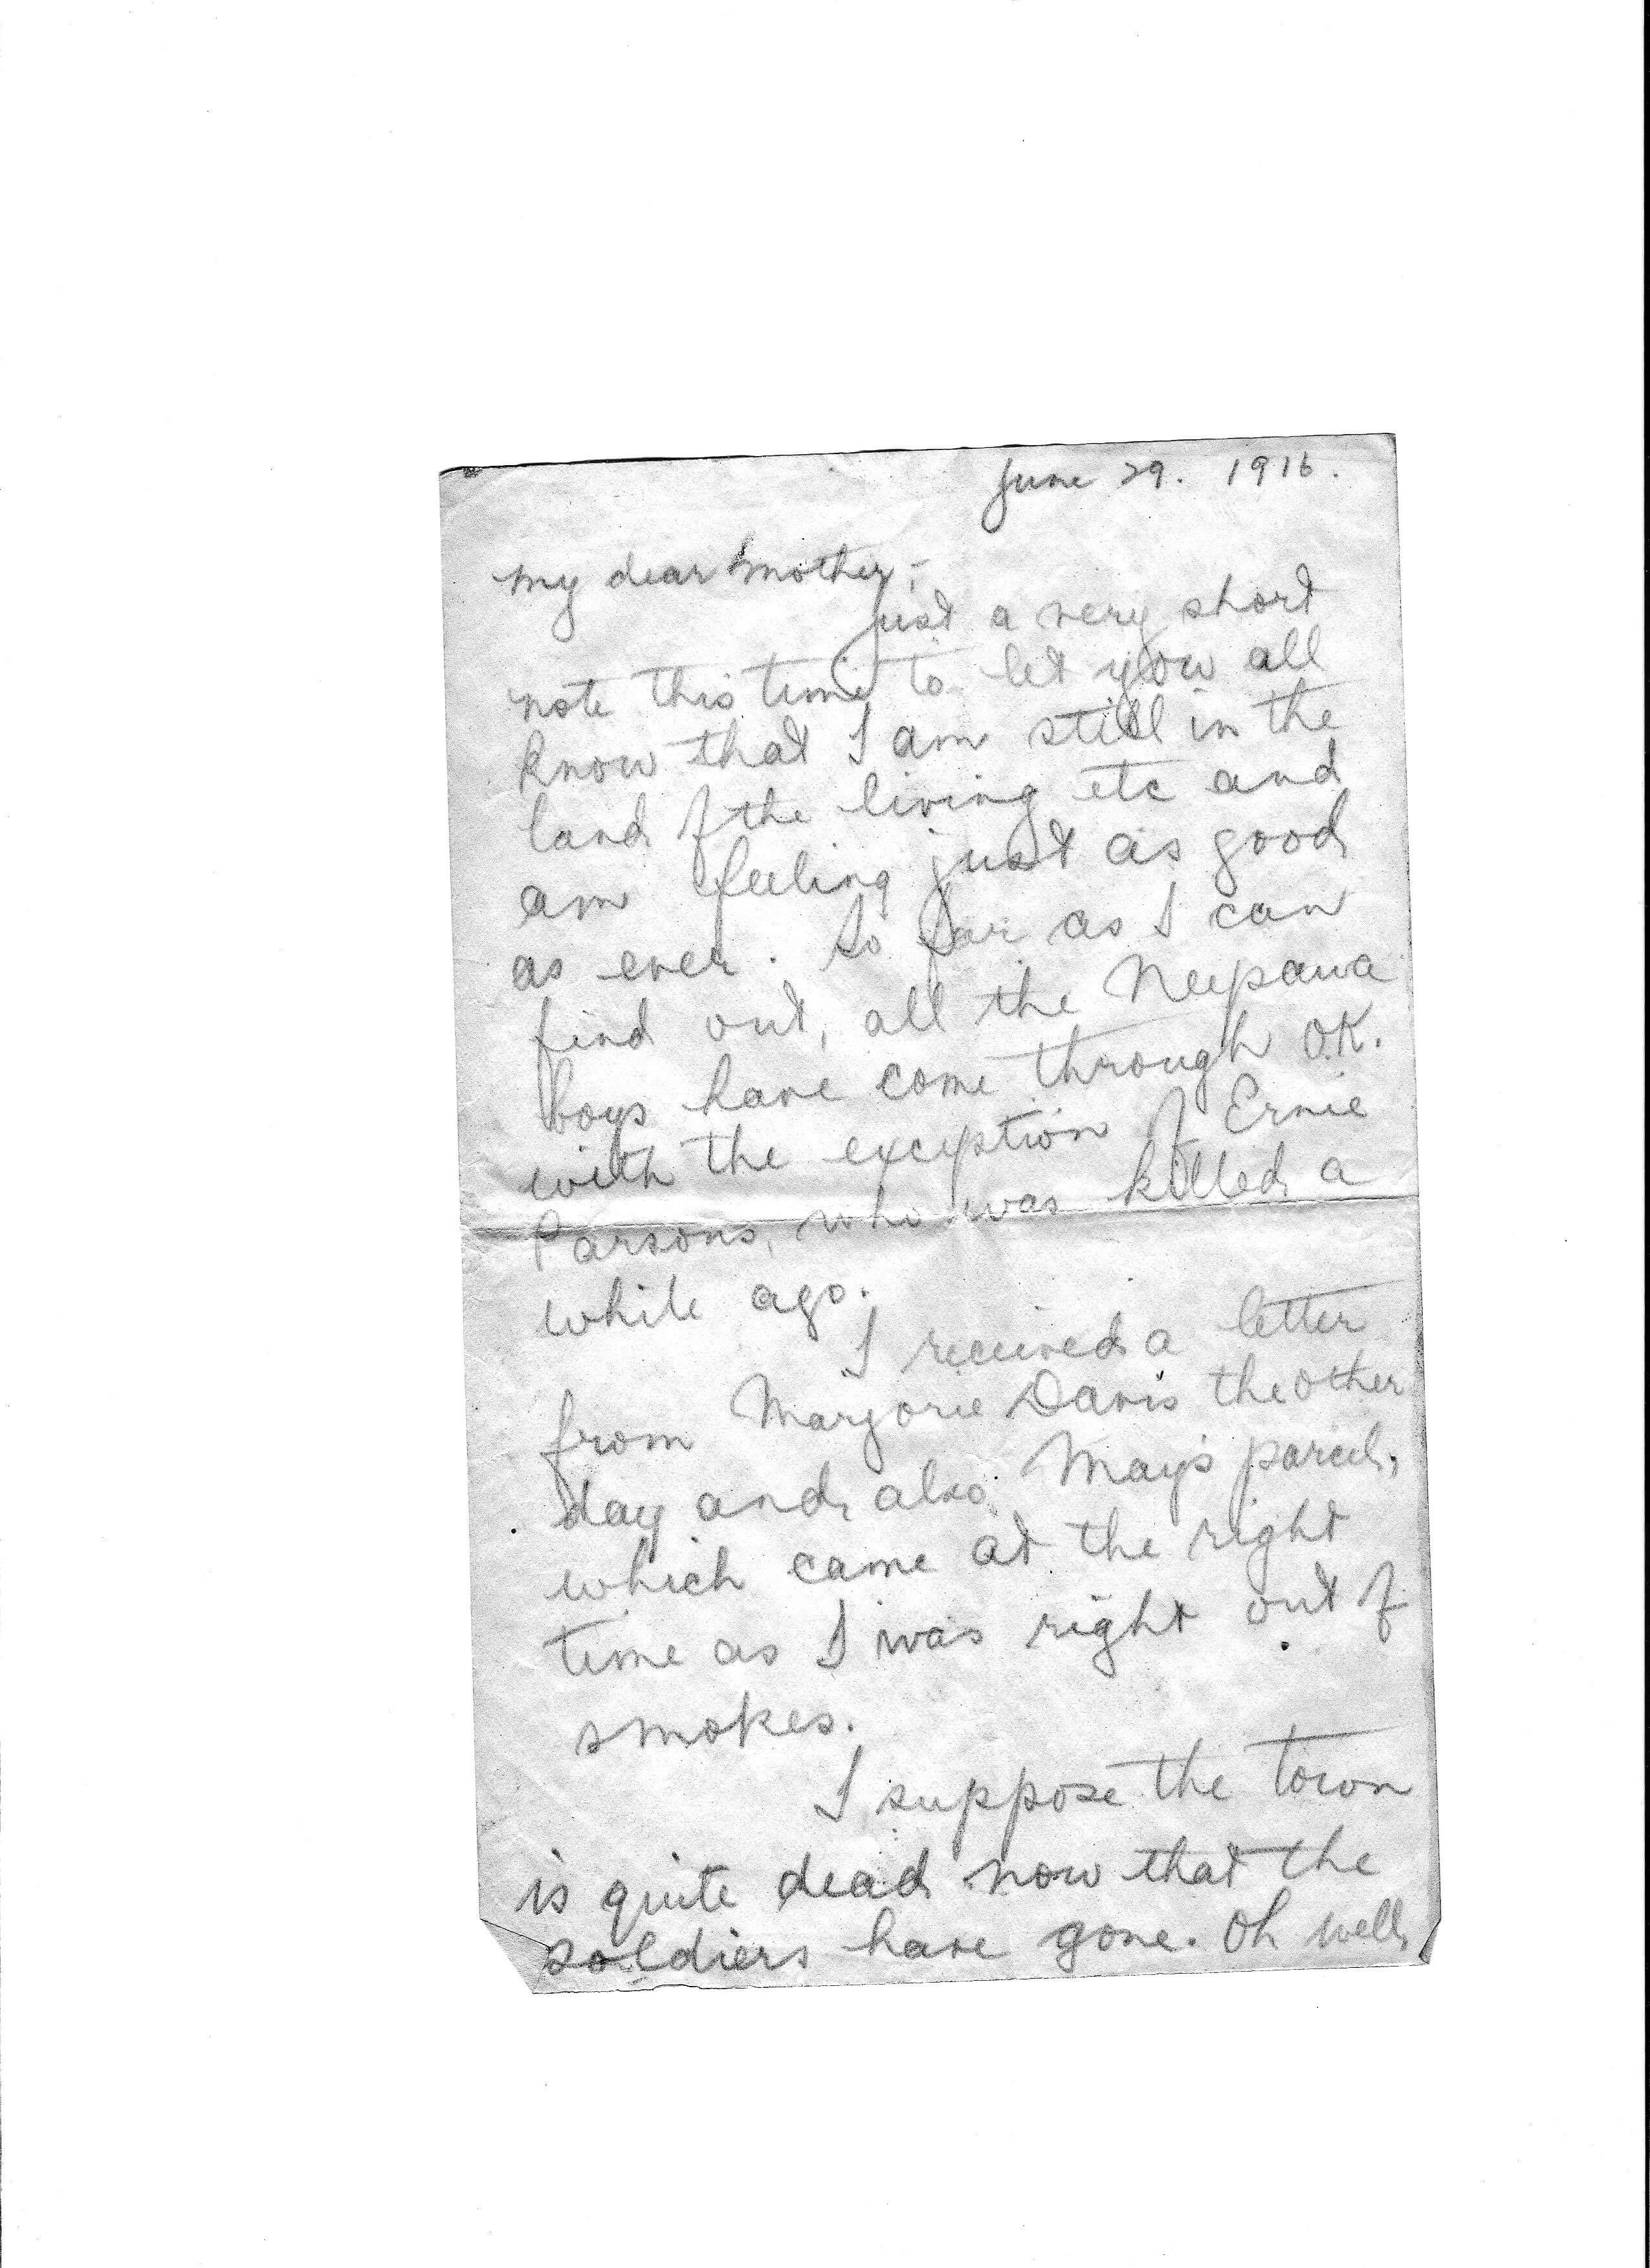 June 29. 1916.
My dear Mother;-
Just a very short
note this time to let you all
know that I am still in the
land of the living etc and
am feeling just as good
as ever. So far as I can
find out, all the Neepawa
boys have come through O.K.
with the exception of Ernie
Parsons, who was killed a
while ago.
I received a letter
from Marjorie Davis the other
day and also May's parcel,
which came at the right
time as I was right out of
smokes.
I suppose the town
is quite dead now that the
soldiers have gone. Oh well